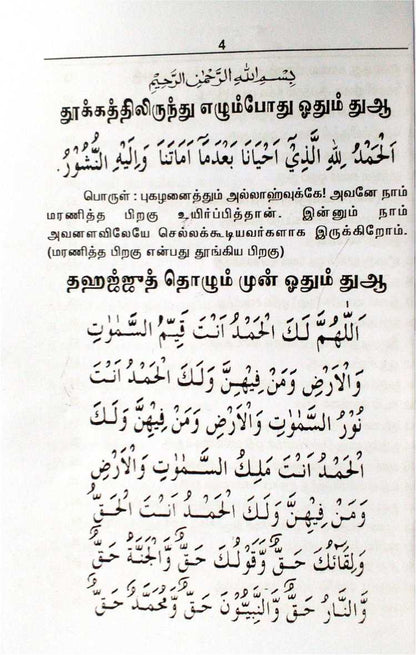 4
بِسْمِ اللهِ الرَّحْمٰنِ الرَّحِيْمِ
தூக்கத்திலிருந்து எழும்போது ஓதும் துஆ
اَلْحَمْدُ لِلّٰهِ الَّذِيْٓ اَحْيَانَا بَعْدَمَٓا اَمَاتَنَا وَاِلَيْهِ النُّشُوْرُ.
பொருள் : புகழனைத்தும் அல்லாஹ்வுக்கே! அவனே நாம்
மரணித்த பிறகு உயிர்ப்பித்தான். இன்னும் நாம்
அவனளவிலேயே செல்லக்கூடியவர்களாக இருக்கிறோம்.
(மரணித்த பிறகு என்பது தூங்கிய பிறகு)
தஹஜ்ஜுத் தொழும் முன் ஓதும் துஆ
اَللّٰهُمَّ لَكَ الْحَمْدُ اَنْتَ قَيِّمُ السَّمٰوٰتِ
وَالْاَرْضِ وَمَنْ فِيْهِنَّ وَلَكَ الْحَمْدُ اَنْتَ
نُوْرُ السَّمٰوٰتِ وَالْاَرْضِ وَمَنْ فِيْهِنَّ وَلَكَ
الْحَمْدُ اَنْتَ مَلِكُ السَّمٰوٰتِ وَالْاَرْضِ
وَمَنْ فِيْهِنَّ وَلَكَ الْحَمْدُ اَنْتَ الْحَقُّ
وَلِقَآئُكَ حَقٌّ وَّقَوْلُكَ حَقٌّ وَّالْجَنَّةُ حَقٌّ
وَّالنَّارُ حَقٌّ وَّالنَّبِيُّوْنَ حَقٌّ وَّمُحَمَّدٌ حَقٌّ